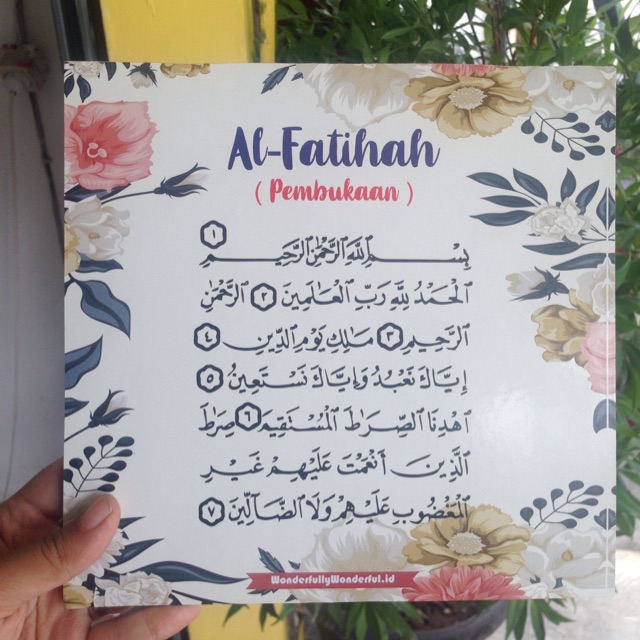 Al-Fatihah
( Pembukaan )
١
بِسْمِ ٱللَّهِ ٱلرَّحْمَٰنِ ٱلرَّحِيمِ
ٱلْحَمْدُ لِلَّهِ رَبِّ ٱلْعَٰلَمِينَ ٢ ٱلرَّحْمَٰنِ
ٱلرَّحِيمِ ٣ مَٰلِكِ يَوْمِ ٱلدِّينِ ٤
إِيَّاكَ نَعْبُدُ وَإِيَّاكَ نَسْتَعِينُ ٥
ٱهْدِنَا ٱلصِّرَٰطَ ٱلْمُسْتَقِيمَ ٦ صِرَٰطَ
ٱلَّذِينَ أَنْعَمْتَ عَلَيْهِمْ غَيْرِ
ٱلْمَغْضُوبِ عَلَيْهِمْ وَلَا ٱلضَّآلِّينَ ٧
WonderfullyWonderful.id